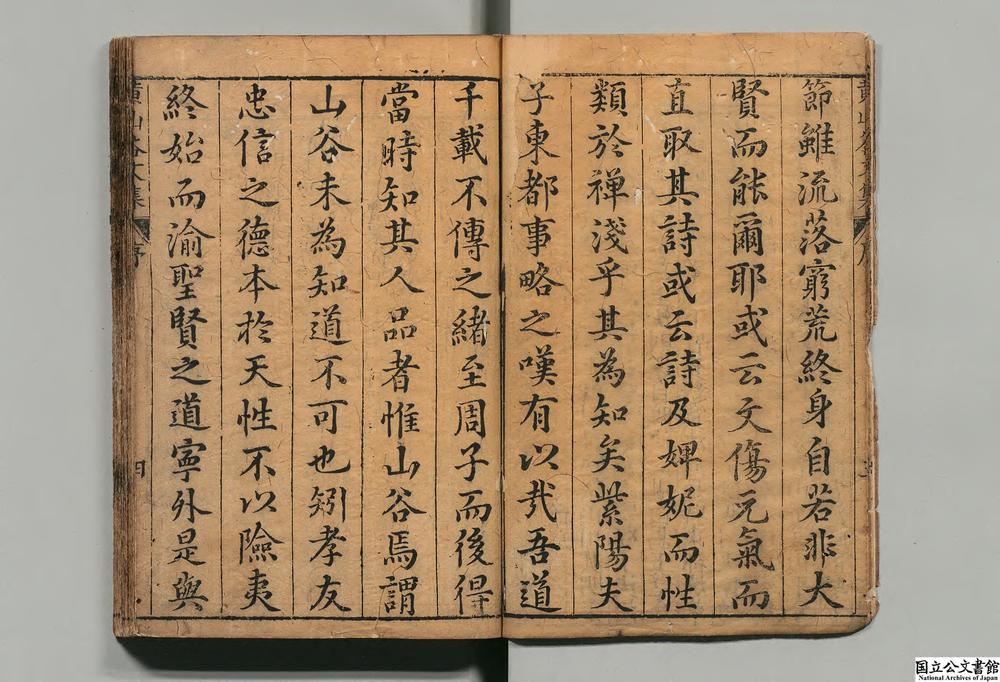 節雖流落窮荒終身自若非大
賢而能爾耶或云文傷元氣而
直取其詩或云詩及婢妮而性
類於禪淺乎其為知矣紫陽夫
子東都事略之嘆有以哉吾道
千載不傳之緒至周子而後得
當時知其人品者惟山谷焉謂
山谷未為知道不可也矧孝友
忠信之德本於天性不以險夷
終始而渝聖賢之道寧外是與
黃山谷文集
序
四
国立公文書館
National Archives of Japan